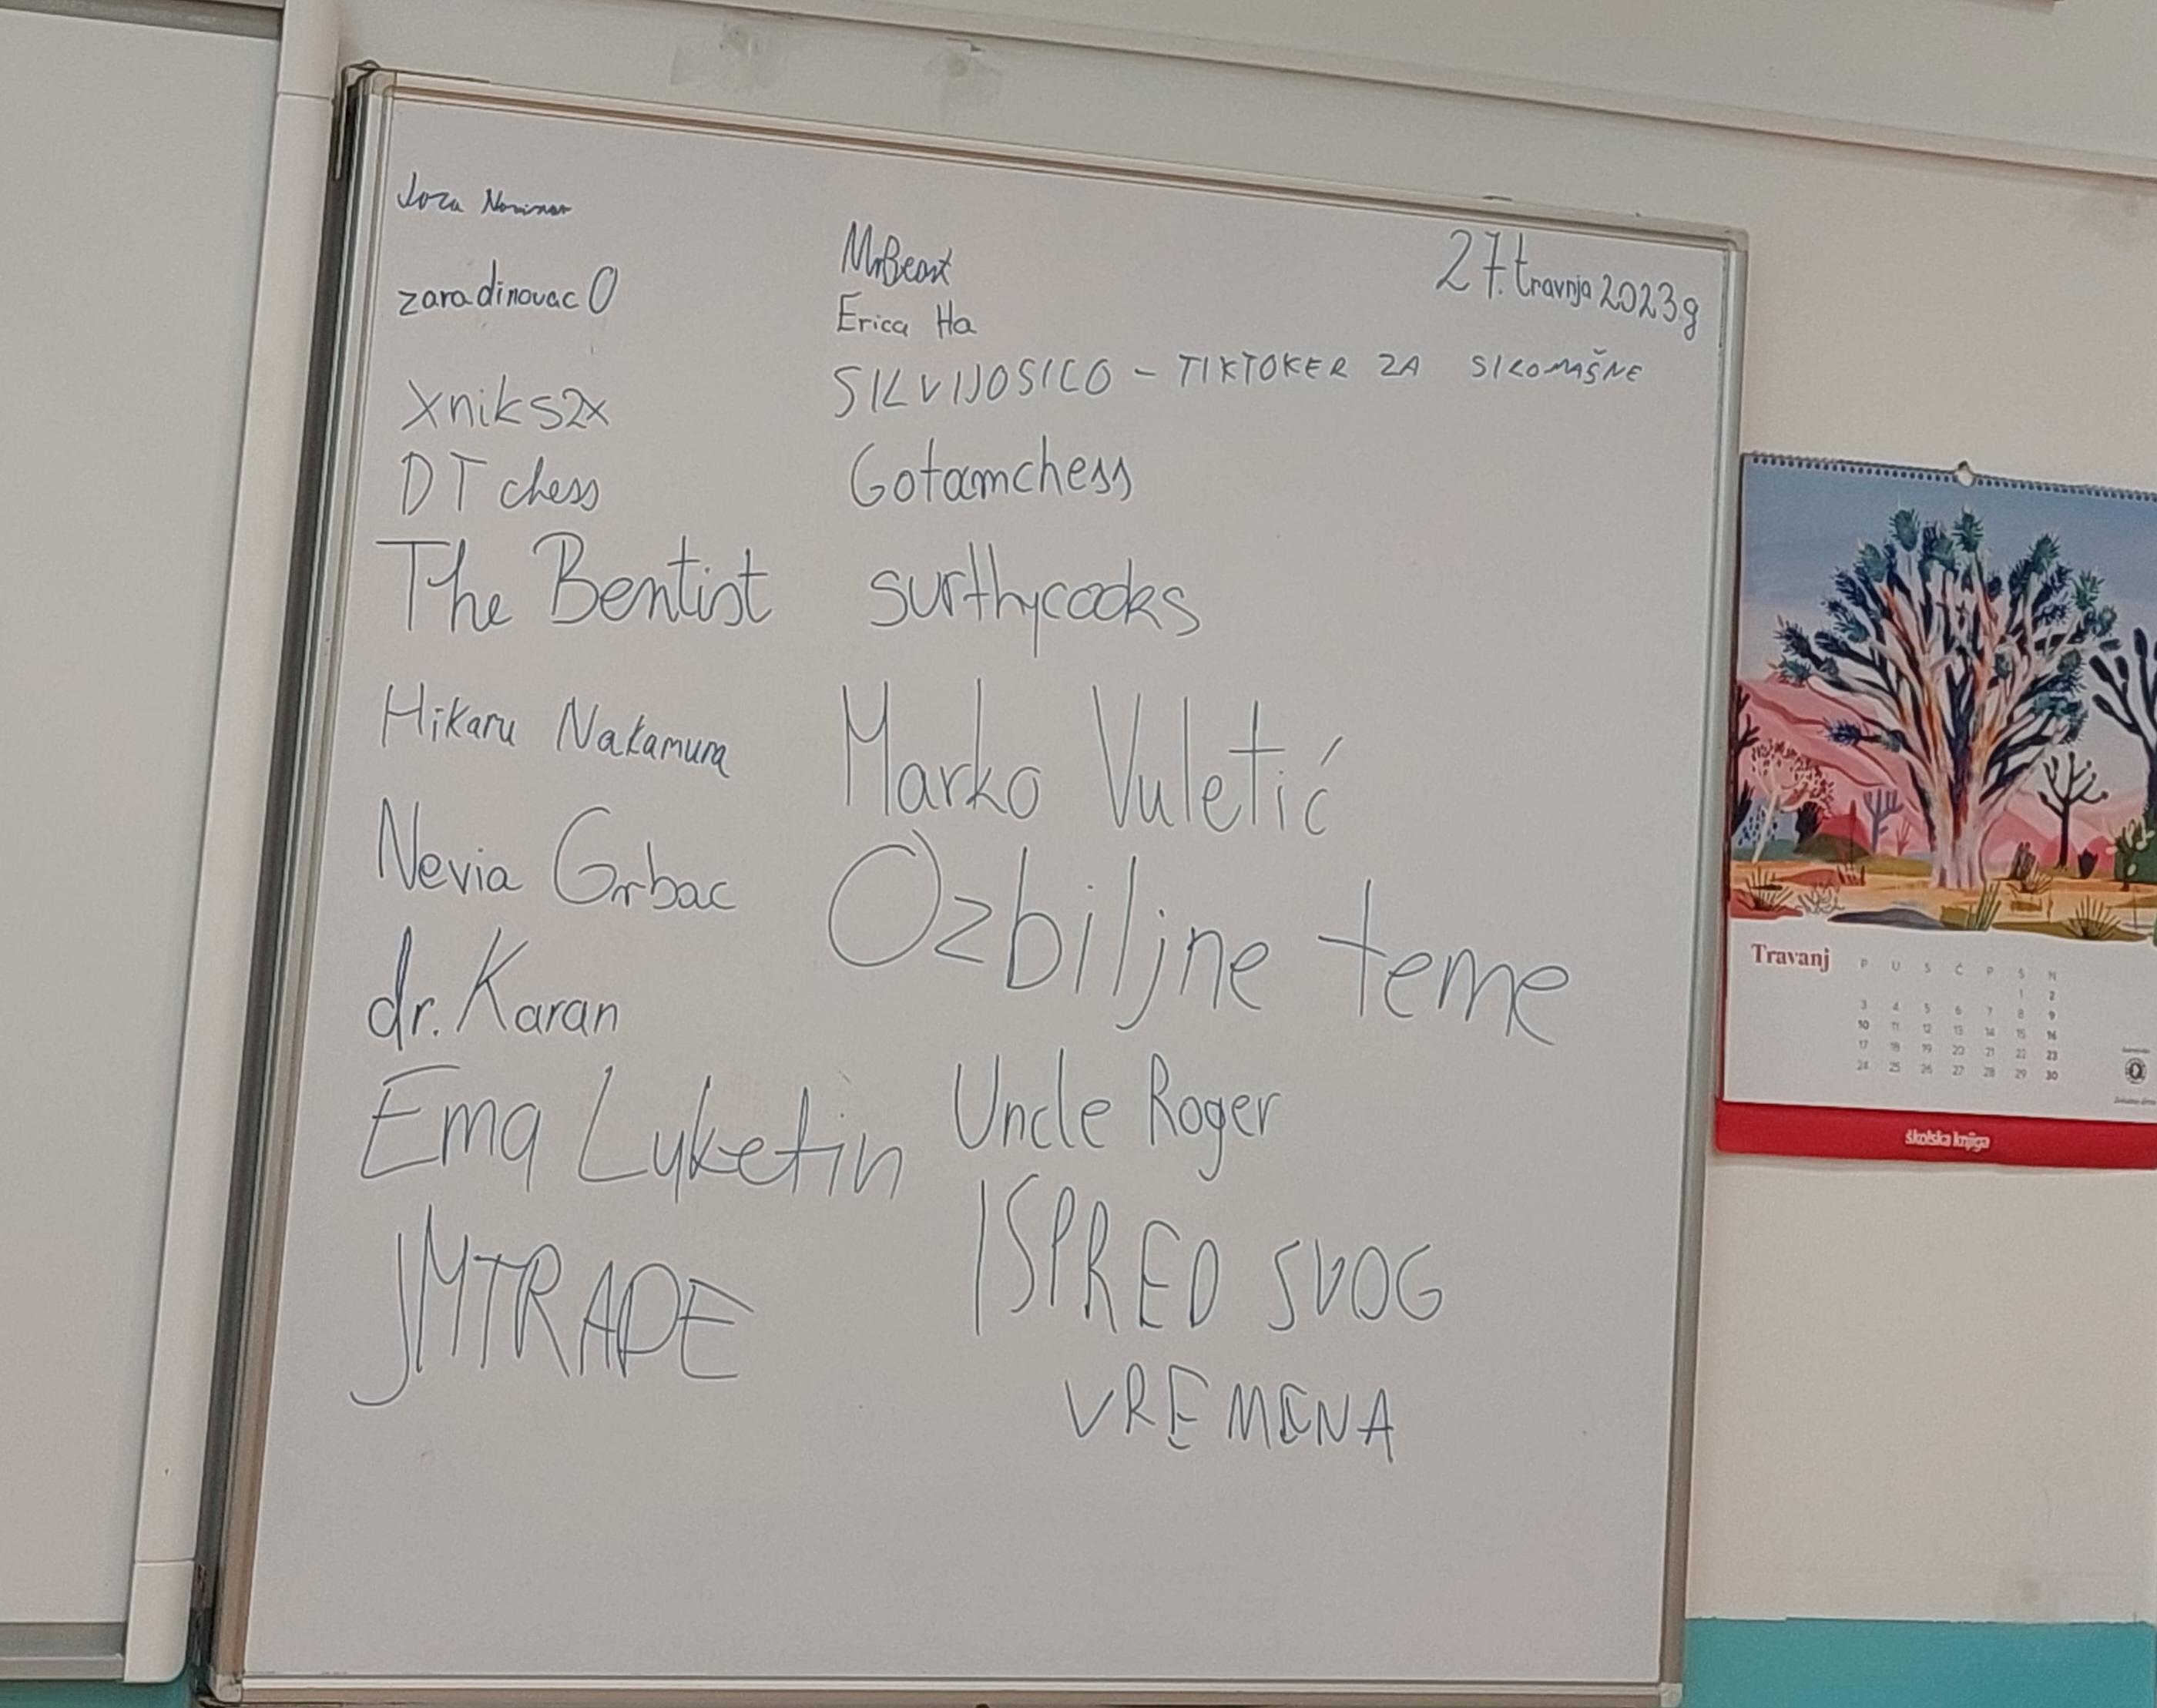 Joza
zaradinovac0
xniks2x
DT chess
The Bentist
Hikaru Nakamura
Nevia Grbac
dr. Karan
Ema Luketin
JMTRADE
MrBeast
Erica Ha
SILVIJOSILO - TIKTOKER ZA SIROMAŠNE
Gotamchess
surthycooks
Marko Vuletić
Ozbiljne teme
Uncle Roger
ISPRED SVOG
VREMENA
27. travnja 2023g
Travanj
P U S Č P S N
1 2
3 4 5 6 7 8 9
10 11 12 13 14 15 16
17 18 19 20 21 22 23
24 25 26 27 28 29 30
školska knjiga